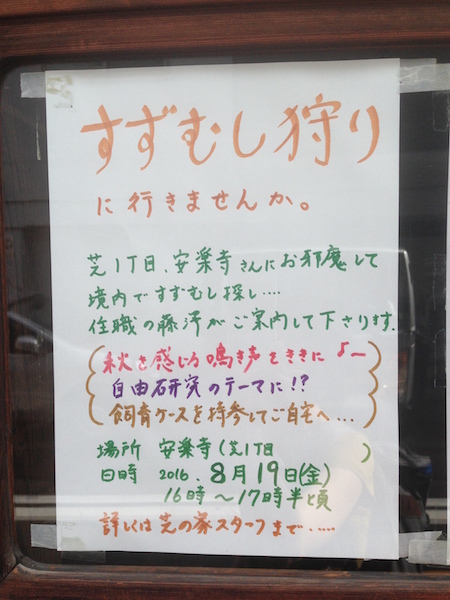 すずむし狩り
に行きませんか。
芝1丁目、安楽寺さんにお邪魔して
境内ですずむし探し....
住職の藤澤がご案内して下さります.
秋を感じる鳴き声をききに♪～
自由研究のテーマに!?
飼育ケースを持参してご自宅へ...
場所 安楽寺(芝1丁目 )
日時 2016. 8月19日(金)
16時～17時半頃
詳しくは芝の家スタッフまで......